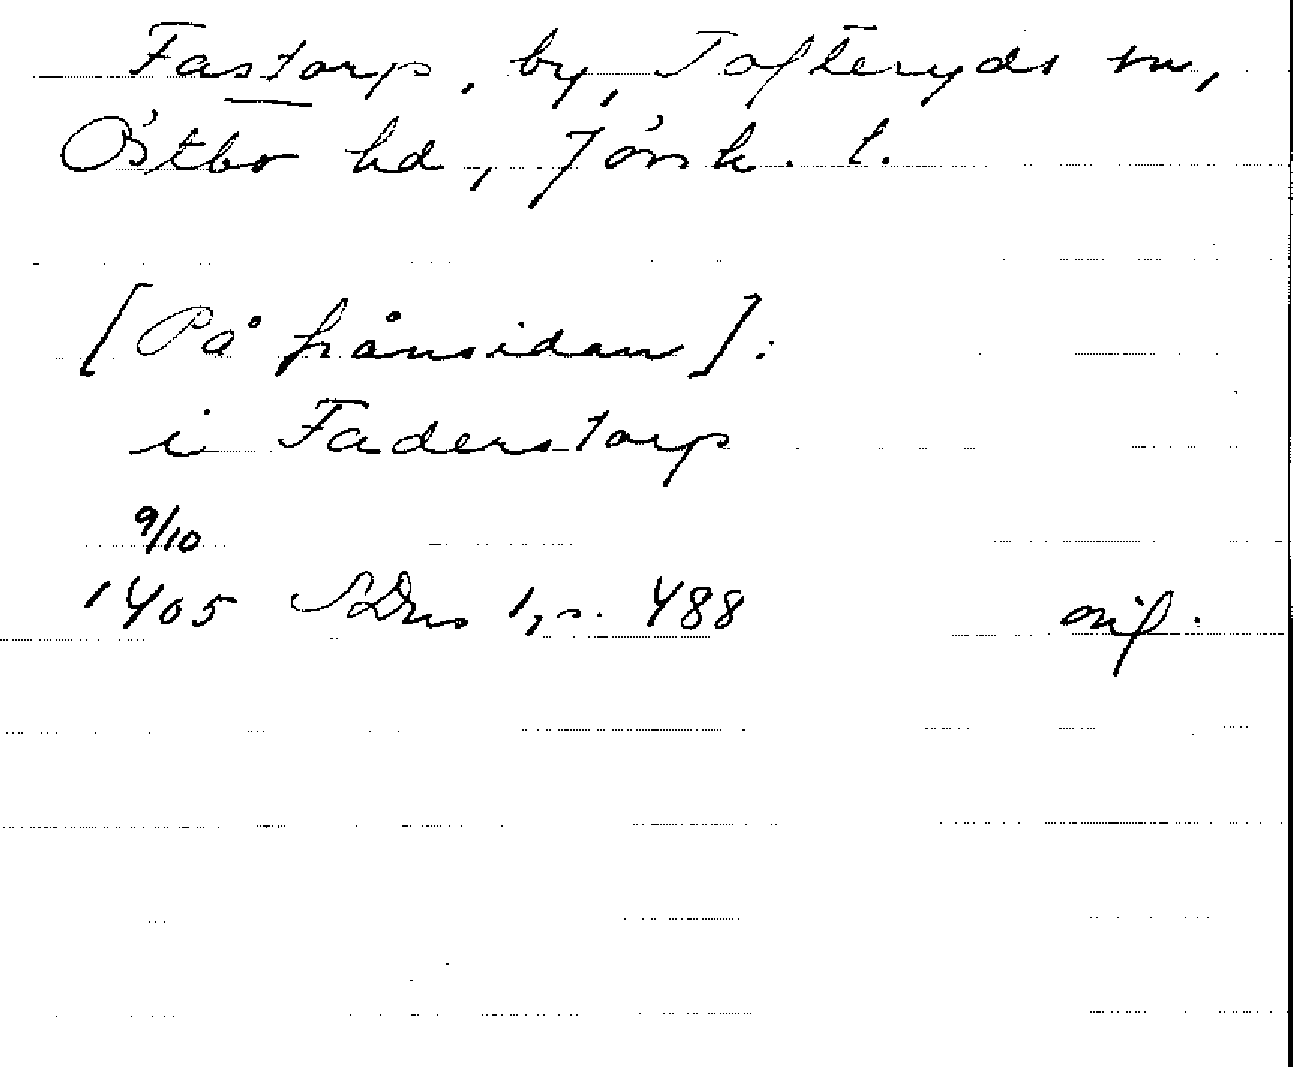 Fastorp, by, Tofteryds sn,
Östbo hd, Jönk. l.
[På frånsidan]:
i Faderstorp
9/10
1405 SDns 1, s. 488 orig.